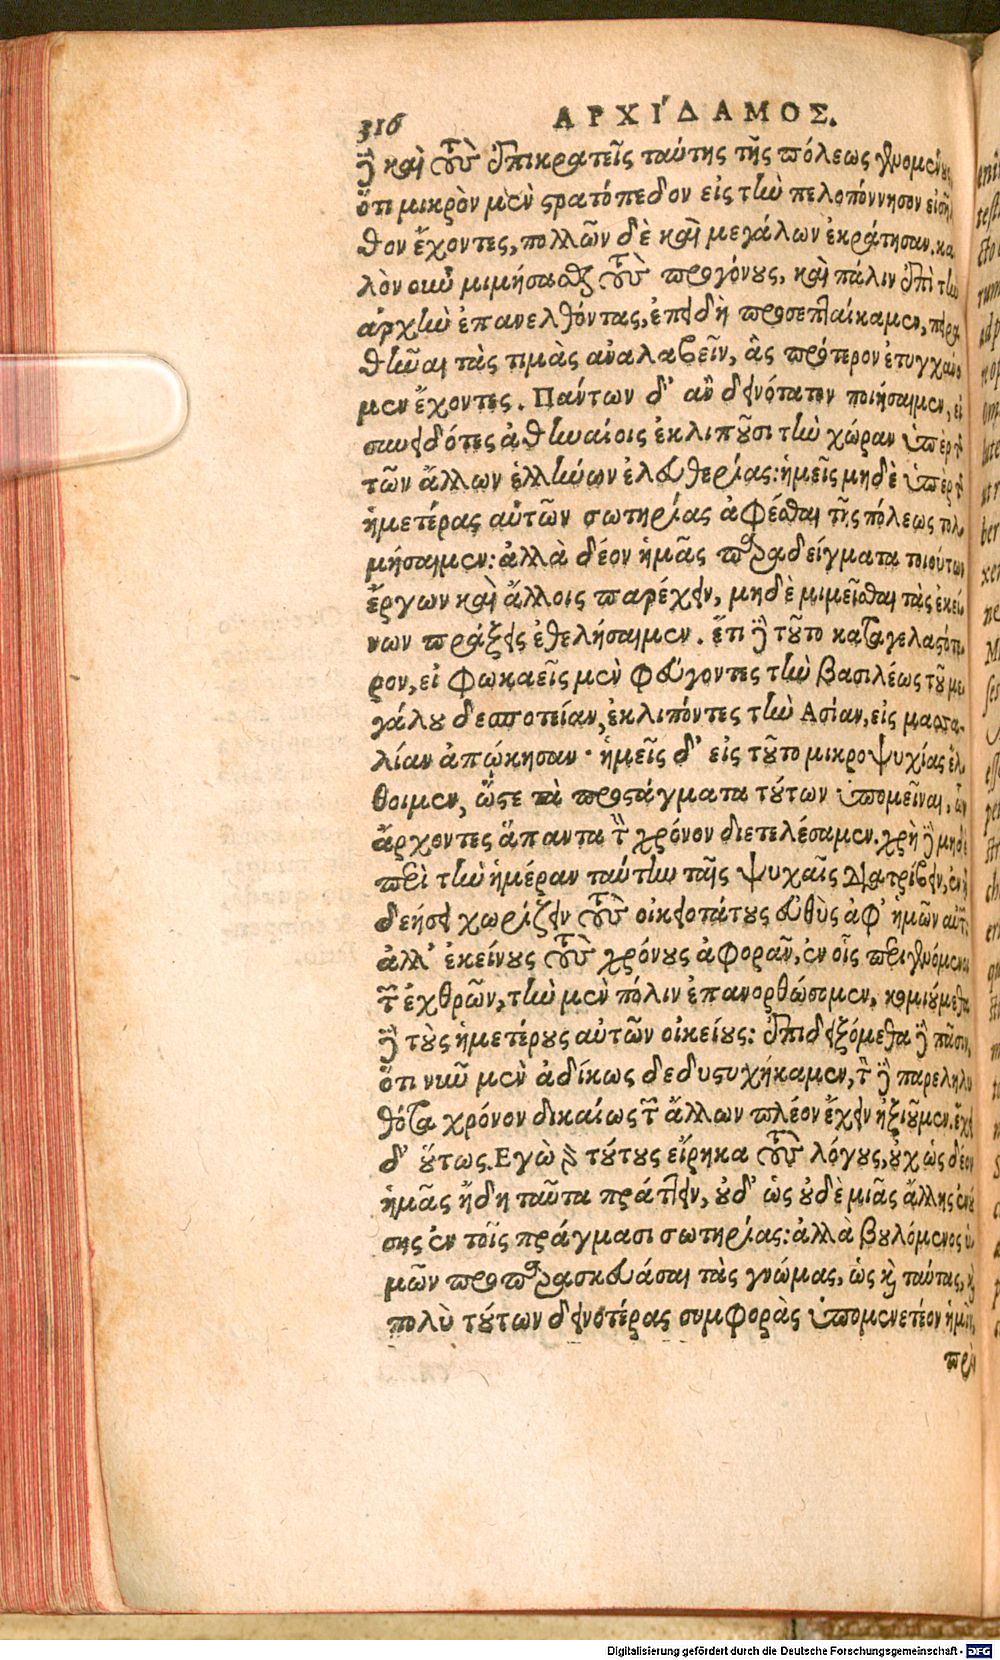 316 ΑΡΧΙ´ΔΑΜΟΣ.
ἢ καὶ τοὺς ἐπικρατεῖς ταύτης τῆς πόλεως
ὅτι μικρὸν μὲν στρατόπεδον εἰς τὴν πελοπόννησον εἰσῆλ
θον ἔχοντες, πολλῶν δὲ καὶ μεγάλων ἐκράτησαν. κα
λὸν οὖν μιμήσασθαι τοὺς προγόνους, καὶ πάλιν ἐπὶ τὴν
ἀρχὴν ἐπανελθόντας, ἐπειδὴ προσεπταίκαμεν, πειρα
θῆναι τὰς τιμὰς ἀναλαβεῖν, ἃς πρότερον ἐτυγχάνο
μεν ἔχοντες. Πάντων δ' ἂν δεινότατον ποιήσαιμεν, εἰ
συνειδότες ἀθηναίοις ἐκλιποῦσι τὴν χώραν ὑπὲρ τῆς
τῶν ἄλλων ἑλλήνων ἐλευθερίας: ἡμεῖς μηδὲ ὑπὲρ τῆς
ἡμετέρας αὐτῶν σωτηρίας ἀφέσθαι τῆς πόλεως τολ
μήσαιμεν: ἀλλὰ δέον ἡμᾶς παραδείγματα τοιούτων
ἔργων καὶ ἄλλοις παρέχειν, μηδὲ μιμεῖσθαι τὰς ἐκεί
νων πράξεις ἐθελήσαιμεν. ἔτι δὲ τοῦτο καταγελαστότε
ρον, εἰ Φωκαεῖς μὲν φεύγοντες τὴν βασιλέως τοῦ με
γάλου δεσποτείαν, ἐκλιπόντες τὴν Ἀσίαν, εἰς μασσα
λίαν ἀπῴκησαν· ἡμεῖς δ' εἰς τοῦτο μικροψυχίας ἔλ
θοιμεν, ὥστε τὰ προστάγματα τούτων ὑπομεῖναι, ὧν
ἄρχοντες ἅπαντα τὸν χρόνον διετελέσαμεν. χρὴ δὲ μηδὲ
περὶ τὴν ἡμέραν ταύτην ταῖς ψυχαῖς διατρίβειν, ἐν ᾗ
δεήσει χωρίζειν τοὺς οἰκειοτάτους εὐθὺς ἀφ' ἡμῶν αὐτῶν:
ἀλλ' ἐκείνους τοὺς χρόνους ἀφορᾶν, ἐν οἷς περιγενόμενοι
τῶν ἐχθρῶν, τὴν μὲν πόλιν ἐπανορθώσομεν, κομιούμεθα
δὲ τοὺς ἡμετέρους αὐτῶν οἰκείους: ἐπιδειξόμεθα δὲ πᾶσιν,
ὅτι νῦν μὲν ἀδίκως δεδυστυχήκαμεν, τὸν δὲ παρεληλυ
θότα χρόνον δικαίως τῶν ἄλλων πλέον ἔχειν ἠξιοῦμεν. ἔχει
δ' οὕτως. Εγὼ τούτους εἴρηκα τοὺς λόγους, οὐχ ὡς δέον
ἡμᾶς ἤδη ταῦτα πράττειν, οὐδ' ὡς οὐδὲ μιᾶς ἄλλης ἐνού
σης ἐν τοῖς πράγμασι σωτηρίας: ἀλλὰ βουλόμενος ὑ
μῶν προπαρασκευάσαι τὰς γνώμας, ὡς καὶ ταύτας, καὶ
πολὺ τούτων δεινοτέρας συμφορὰς ὑπομενετέον ἡμῖν,
πρὶν
Digitalisierung gefördert durch die Deutsche Forschungsgemeinschaft - DFG